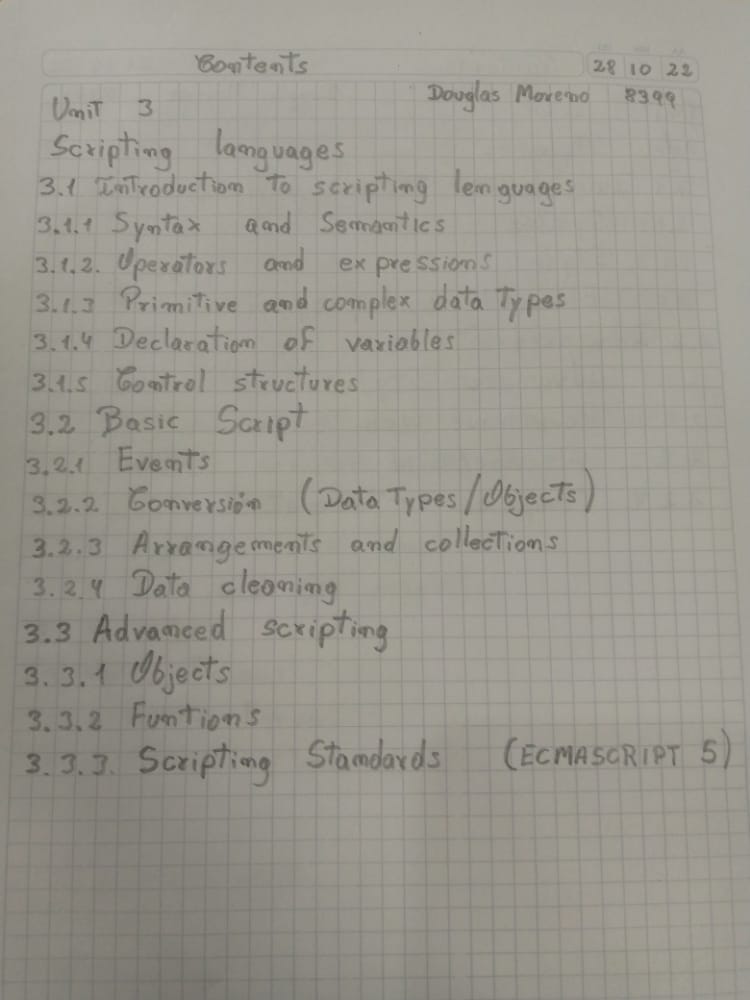 Contents 28 10 22
Douglas Moreno 8399
Unit 3
Scripting languages
3.1 Introduction to scripting lenguages
3.1.1 Syntax and Semantics
3.1.2. Operators and expressions
3.1.3 Primitive and complex data Types
3.1.4 Declaration of variables
3.1.5 Control structures
3.2 Basic Script
3.2.1 Events
3.2.2 Conversión (Data Types/Objects)
3.2.3 Arrangements and collections
3.2.4 Data cleaning
3.3 Advanced scripting
3.3.1 Objects
3.3.2 Funtions
3.3.3. Scripting Standards (ECMASCRIPT 5)